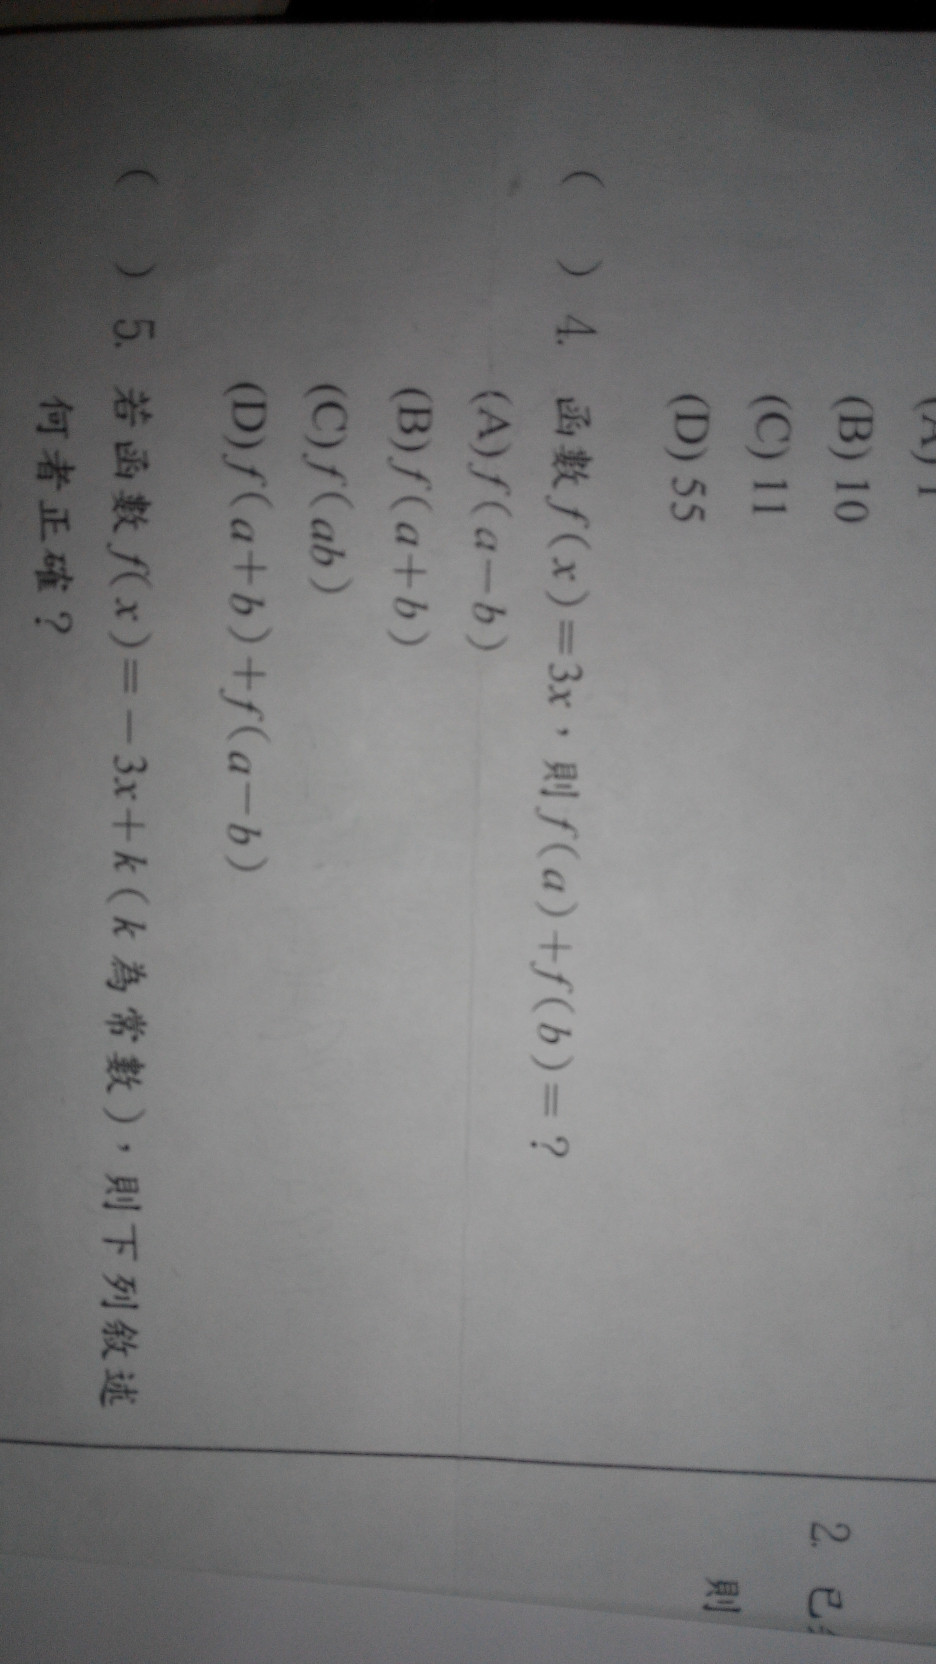 (A) 1
(B) 10
(C) 11
(D) 55
(　) 4. 函數 f(x)=3x，則 f(a)+f(b)=？
(A) f(a-b)
(B) f(a+b)
(C) f(ab)
(D) f(a+b)+f(a-b)
(　) 5. 若函數 f(x)=-3x+k(k 為常數)，則下列敘述
何者正確？
2. 已
則